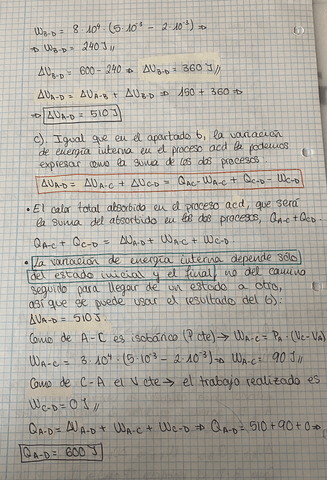 W_B-D = 8·10⁴·(5·10⁻³ - 2·10⁻³) ⇒
⇒ W_B-D = 240 J //
ΔU_B-D = 600 - 240 ⇒ ΔU_B-D = 360 J //
ΔU_A-D = ΔU_A-B + ΔU_B-D ⇒ 150 + 360 ⇒
⇒ ΔU_A-D = 510 J
c). Igual que en el apartado b, la variación
de energía interna en el proceso acd la podemos
expresar como la suma de los dos procesos:
ΔU_A-D = ΔU_A-C + ΔU_C-D = Q_AC - W_A-C + Q_C-D - W_C-D
• El calor total absorbido en el proceso acd, que será
la suma del absorbido en los dos procesos, Q_A-C + Q_CD.
Q_A-C + Q_C-D = ΔU_A-D + W_A-C + W_C-D
• La variación de energía interna depende sólo
del estado inicial y el final, no del camino
seguido para llegar de un estado a otro,
así que se puede usar el resultado del b):
ΔU_A-D = 510 J.
Como de A-C es isobárico (P cte) → W_A-C = P_A·(V_C - V_A)
W_A-C = 3·10⁴·(5·10⁻³ - 2·10⁻³) ⇒ W_A-C = 90 J //
Como de C-A el V cte → el trabajo realizado es
W_C-D = 0 J //
Q_A-D = ΔU_A-D + W_A-C + W_C-D ⇒ Q_A-D = 510 + 90 + 0 ⇒
Q_A-D = 600 J